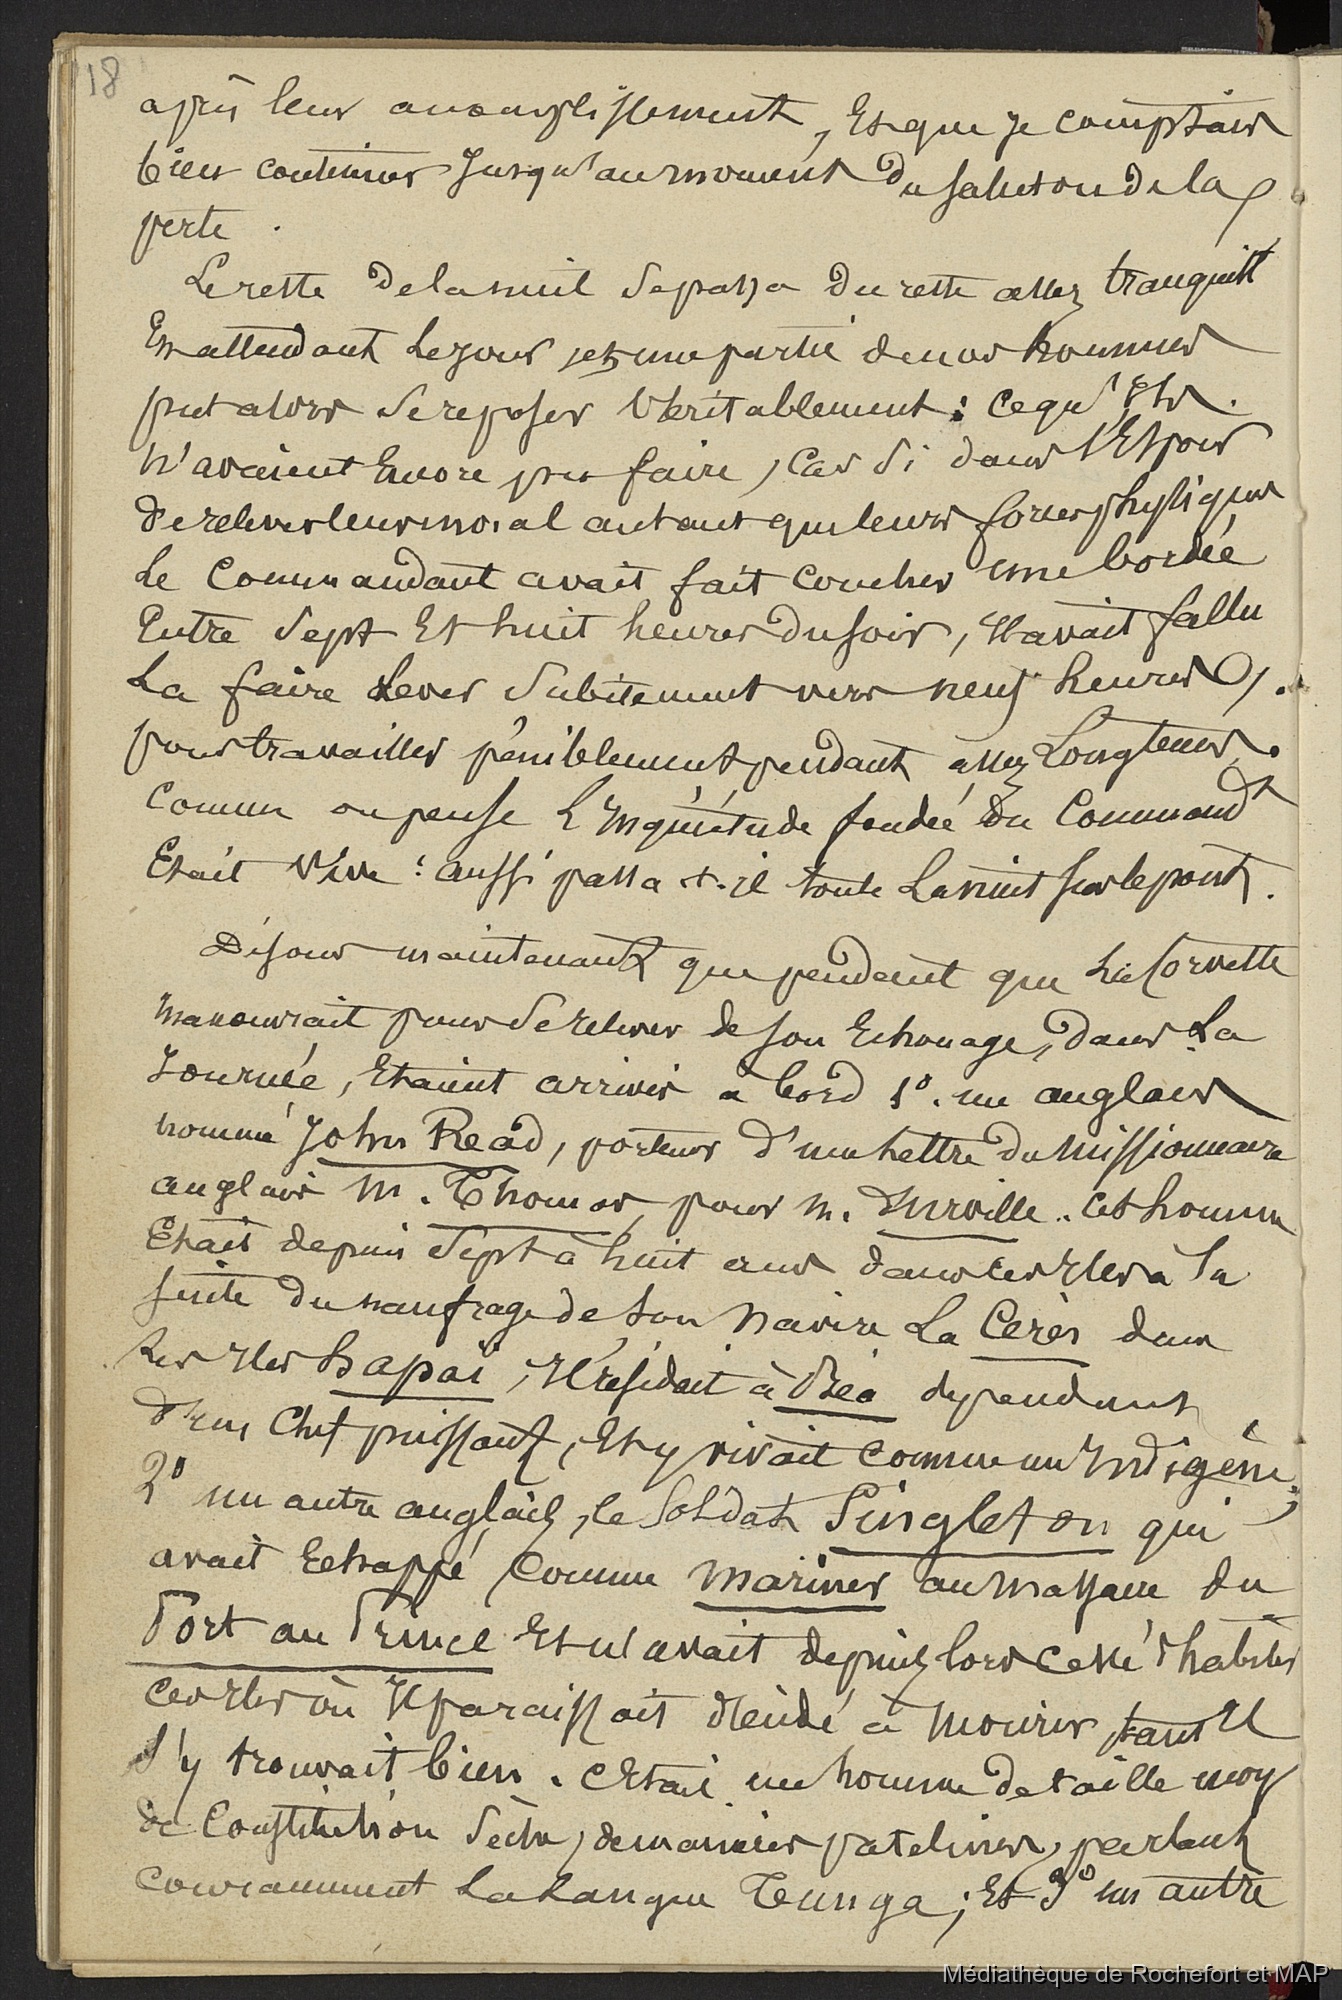 18
après leur accomplissement, Et que je comptais
bien continuer Jusqu'au moment du salut ou de la
perte.
Le reste de la nuit se passa du reste assez tranquill
En attendant Le jour, et une partie de nos hommes
put alors se reposer Véritablement : ce qu'Ils
n'avaient Encore pu faire, Car si dans l'Espoir
de relever leur moral autant que leurs forces physiques
Le Commandant avait fait coucher une bordée
Entre Sept Et huit heures du soir, Il avait fallu
La faire Lever Subitement vers neuf heures
pour travailler péniblement pendant assez Longtems.
Comme on pense L'Inquiétude fondée du Commandt
Etait Vive : aussi passa-t-il toute La nuit sur le pont.
Disons maintenant que pendant que La Corvette
Manoeuvrait pour se relever de son Echouage, dans La
Journée, Etaient arrivés à bord 1º. un anglais
nommé John Read, porteur d'une Lettre du Missionnaire
anglais M. Thomas, pour M. Durville. Cet homme
Etait depuis Sept à huit ans dans ces Iles à la
suite du naufrage de son Navire La Cérès dans
Les Iles hapaï, Il résidait à Béa dépendant
d'un Chef puissant, Et y vivait comme un Indigène;
2º un autre anglais, le Soldat Singleton qui
avait Echappé, Comme Mariner au Massacre du
Port au Prince Et n'avait depuis lors cessé d'habiter
ces Iles où Il paraissait décidé à Mourir, tant Il
s'y trouvait bien. C'Etait un homme de taille moy
de Constitution Sèche, de manières patelines, parlant
couramment La Langue Tunga ; Et 3º un autre
Médiathèque de Rochefort et MAP